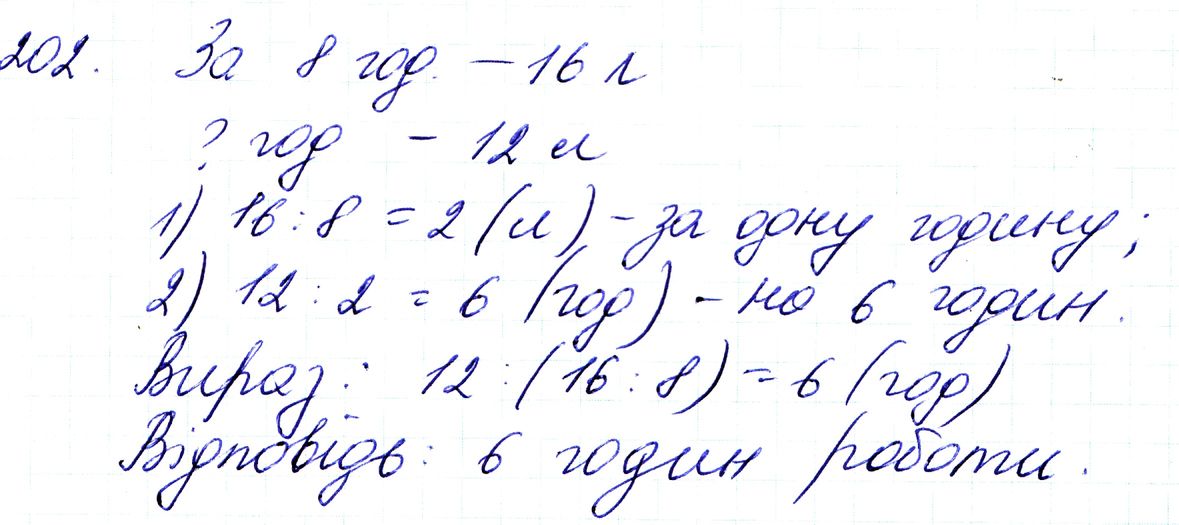 202. За 8 год. – 16 л
? год – 12 л
1) 16 : 8 = 2 (л) – за одну годину;
2) 12 : 2 = 6 (год) – на 6 годин.
Вираз: 12 : (16 : 8) = 6 (год)
Відповідь: 6 годин роботи.